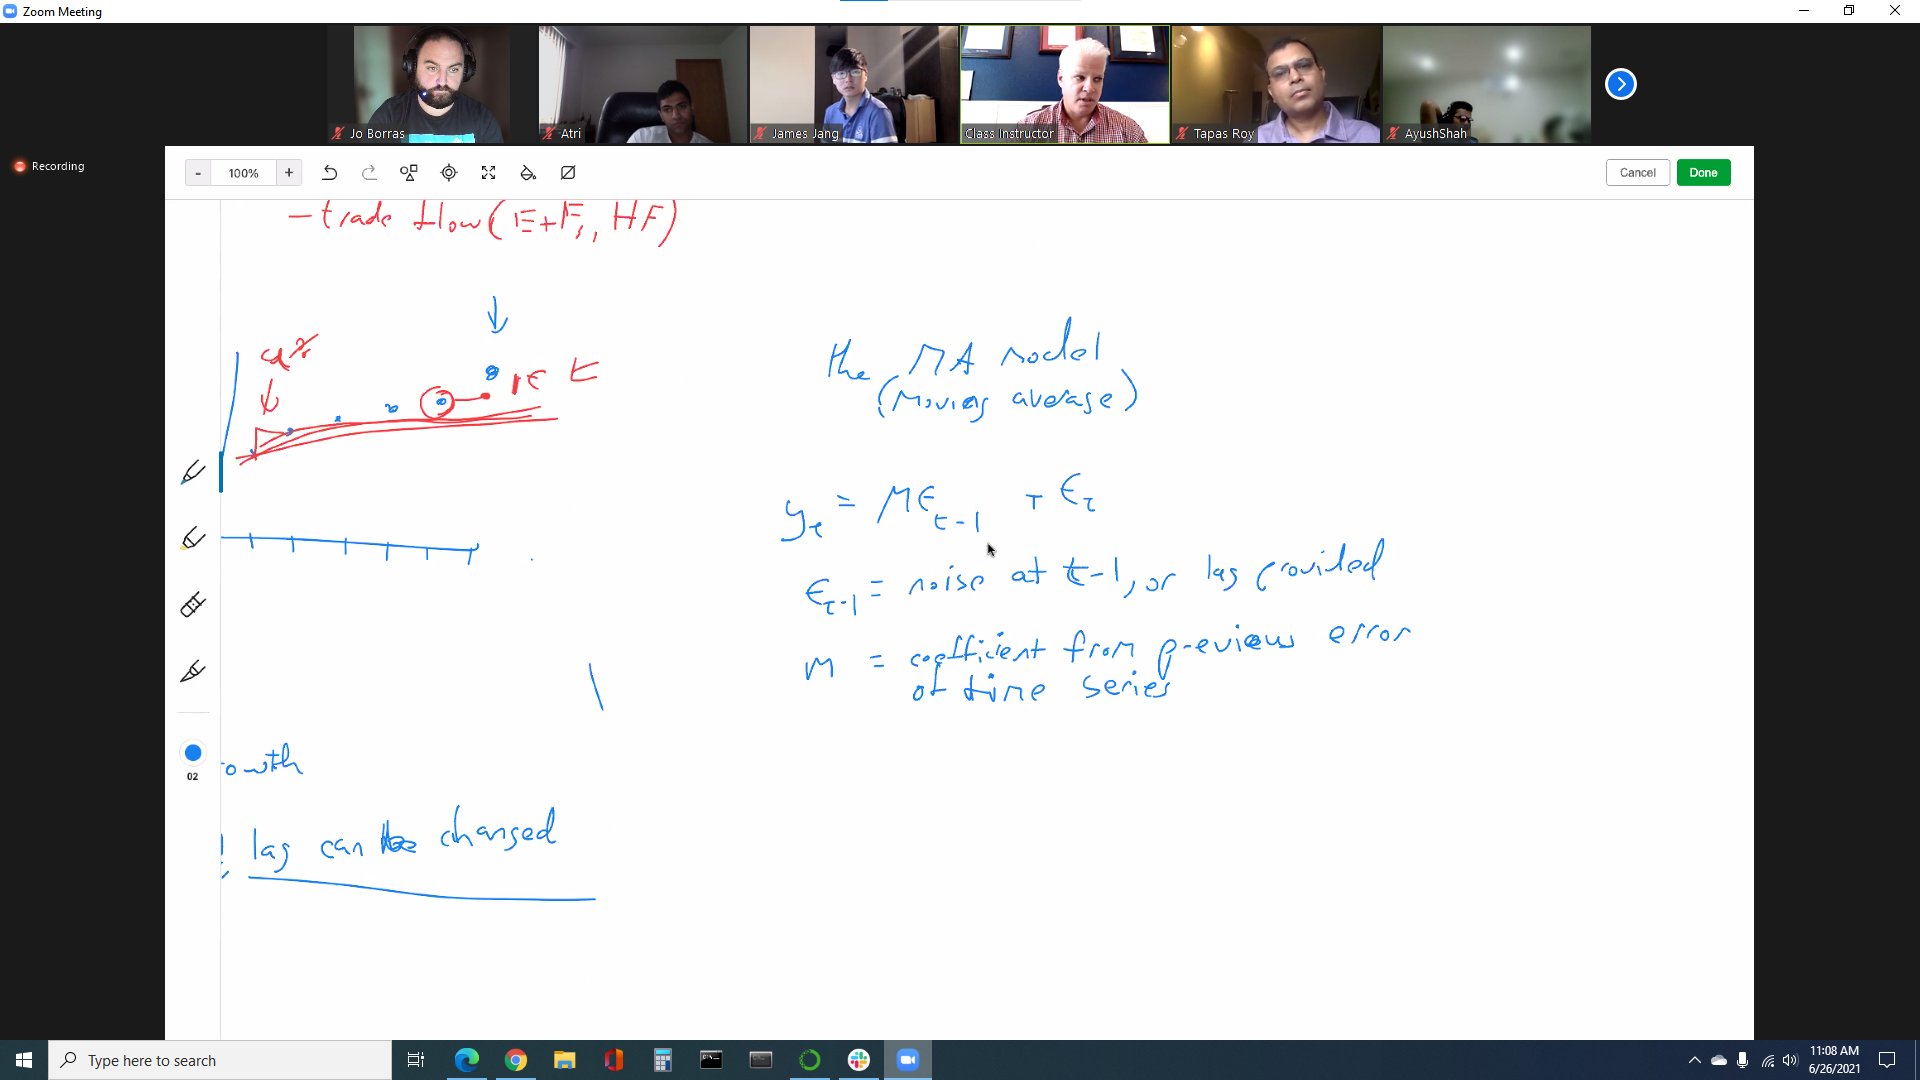 Zoom Meeting
Jo Borras
Atri
James Jang
Class Instructor
Tapas Roy
AyushShah
Recording
- 100% +
Cancel
Done
- trade flow (E+F, HF)
t
the MA model
(Moving average)
yt = Mϵt-1 + ϵt
ϵt-1 = noise at t-1, or lag provided
M = coefficient from previous error
of time series
02
owth
! lag can be changed
Type here to search
11:08 AM
6/26/2021